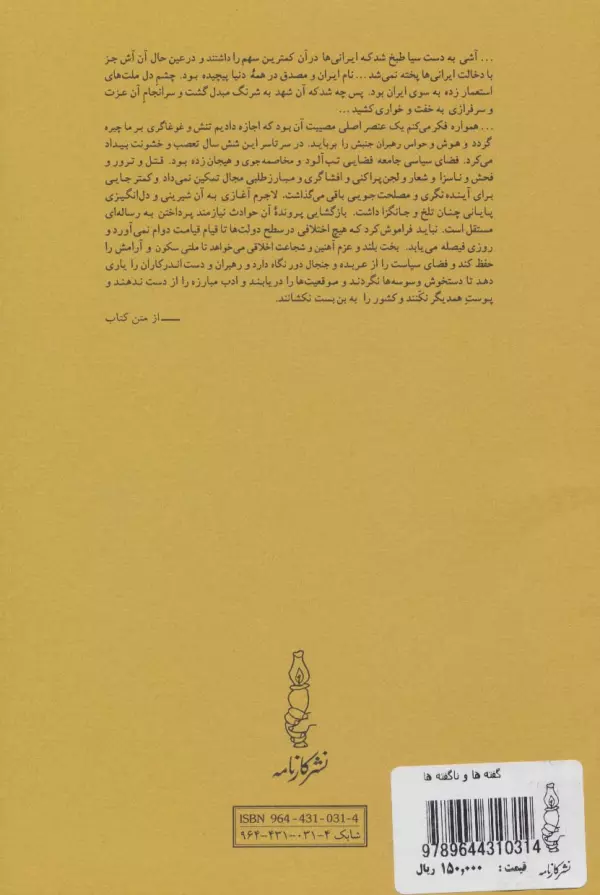 ... آشی به دست سیا طبخ شد که ایرانی‌ها در آن کمترین سهم را داشتند و در عین حال آن آش جز
با دخالت ایرانی‌ها پخته نمی‌شد... نام ایران و مصدق در همهٔ دنیا پیچیده بود. چشم دل ملت‌های
استعمار زده به سوی ایران بود. پس چه شد که آن شهد به شرنگ مبدل گشت و سرانجام آن عزت
و سرفرازی به خفّت و خواری کشید ...
... همواره فکر می‌کنم یک عنصر اصلی مصیبت آن بود که اجازه دادیم تنش و غوغاگری بر ما چیره
گردد و هوش و حواس رهبران جنبش را برباید. در سرتاسر این شش سال تعصب و خشونت بیداد
می‌کرد. فضای سیاسی جامعه فضایی تب‌آلود و مخاصمه‌جوی و هیجان زده بود. قتل و ترور و
فحش و ناسزا و شعار و لجن‌پراکنی و افشاگری و مبارزطلبی مجال تمکین نمی‌داد و کمتر جایی
برای آینده نگری و مصلحت‌جویی باقی می‌گذاشت. لاجرم آغازی به آن شیرینی و دل‌انگیزی
پایانی چنان تلخ و جانگزا داشت. بازگشایی پروندهٔ آن حوادث نیازمند پرداختن به رساله‌ای
مستقل است. نباید فراموش کرد که هیچ اختلافی در سطح دولت‌ها تا قیام قیامت دوام نمی‌آورد و
روزی فیصله می‌یابد. بخت بلند و عزم آهنین و شجاعت اخلاقی می‌خواهد تا ملتی سکون و آرامش را
حفظ کند و فضای سیاست را از عربده و جنجال دور نگاه دارد و رهبران و دست‌اندرکاران را یاری
دهد تا دستخوش وسوسه‌ها نگردند و موقعیت‌ها را دریابند و ادب مبارزه را از دست ندهند و
پوستِ همدیگر نکَنند و کشور را به بن‌بست نکشانند.
ــــ از متن کتاب
نشر کارنامه
ISBN 964-431-031-4
شابک ۴-۰۳۱-۴۳۱-۹۶۴
گفته ها و ناگفته ها
9789644310314
قیمت: ۱۵۰,۰۰۰ ریال
نشر کارنامه